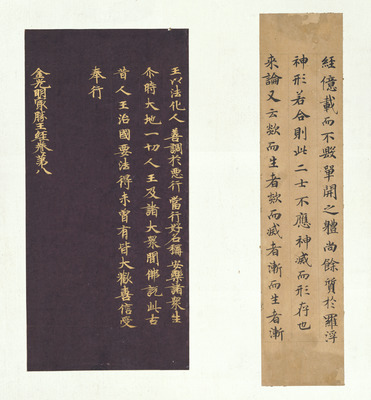 經億載而不毀單開之體尚餘質於羅浮
神形若合則此二士不應神滅而形存也
來論又云歘而生者歘而滅者漸而生者漸
王以法化人善調於惡行常得好名稱安樂諸衆生
尒時大地一切人王及諸大衆聞佛說此古
昔人王治國要法得未曾有皆大歡喜信受
奉行
金光明㝡勝王經卷第八